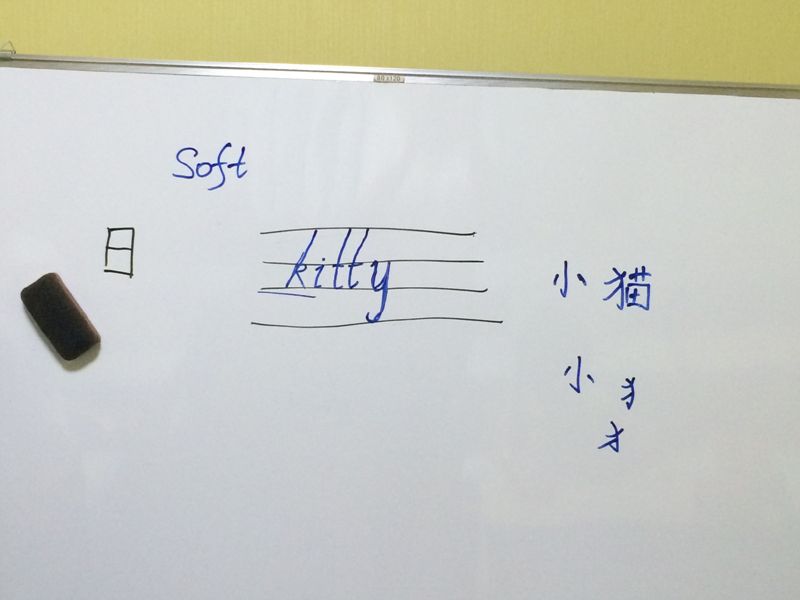 80x120
Soft
日
kitty
小猫
小犭
犭